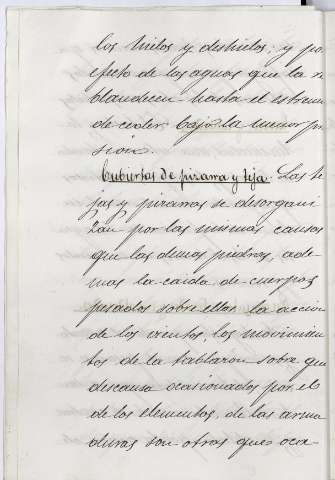 los hielos y deshielos, y po
efecto de las aguas que la r
blandecen hasta el estremo
de ceder bajo la menor pre
sion.
Cubiertas de pizarra y teja. Las te
jas y pizarras se desorgani
zan por las mismas causas
que las demas piedras, ade-
mas la caida de cuerpos
pesados sobre ellas la accion
de los vientos, los movimien
tos de la tablazon sobre que
descansa ocasionados por el
de los elementos, de las arma
duras son otras que oca-